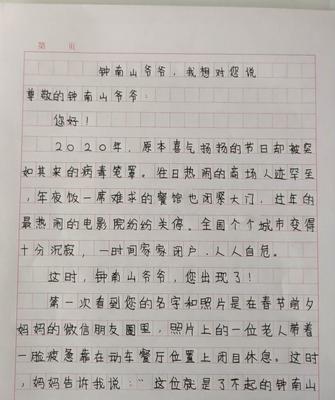 第 页
钟南山爷爷，我想对您说
尊敬的钟南山爷爷：
您好！
2020年，原本喜气扬扬的节日却被突
如其来的病毒笼罩。往日热闹的商场人迹罕至
，年夜饭一席难求的餐馆也闭紧大门，过年的
最热闹的电影院纷纷关停。全国个个城市变得
十分沉寂，一时间家家闭户，人人自危。
这时，钟南山爷爷，您出现了！
第一次看到您的名字和照片是在春节前夕
妈妈的微信朋友圈里，照片上的一位老人带着
一脸疲惫靠在动车餐厅位置上闭目休息。这时
，妈妈告诉我说：“这位就是了不起的钟南山